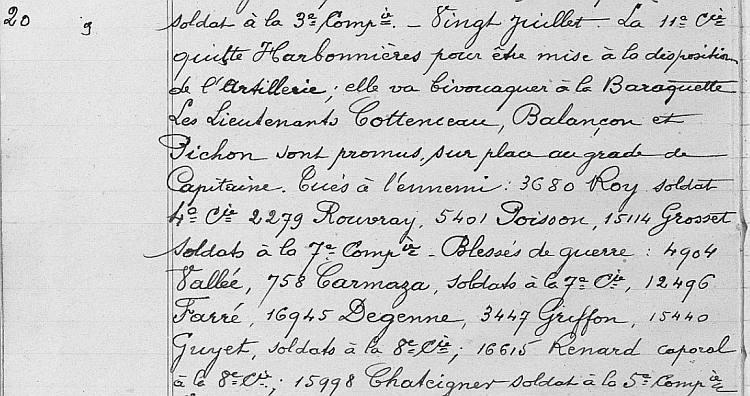 20 9 soldat à la 3e Compie. – Vingt juillet. La 11e Cie
quitte Harbonnières pour être mise à la disposition
de l'Artillerie ; elle va bivouaquer à la Baraquette
Les Lieutenants Cottenceau, Balançon et
Pichon sont promus, sur place au grade de
Capitaine. Tués à l'ennemi : 3680 Roy soldat
4e Cie 2279 Rouvray, 5401 Poisson, 15114 Grosset
soldats à la 7e Compie – Blessés de guerre : 4904
Vallée, 758 Carmaza, soldats à la 7e Cie, 12496
Farré, 16945 Degenne, 3447 Griffon, 15440
Guyet, soldats à la 8e Cie ; 16615 Renard caporal
à la 8e Cie ; 15998 Chateigner soldat à la 5e Compie